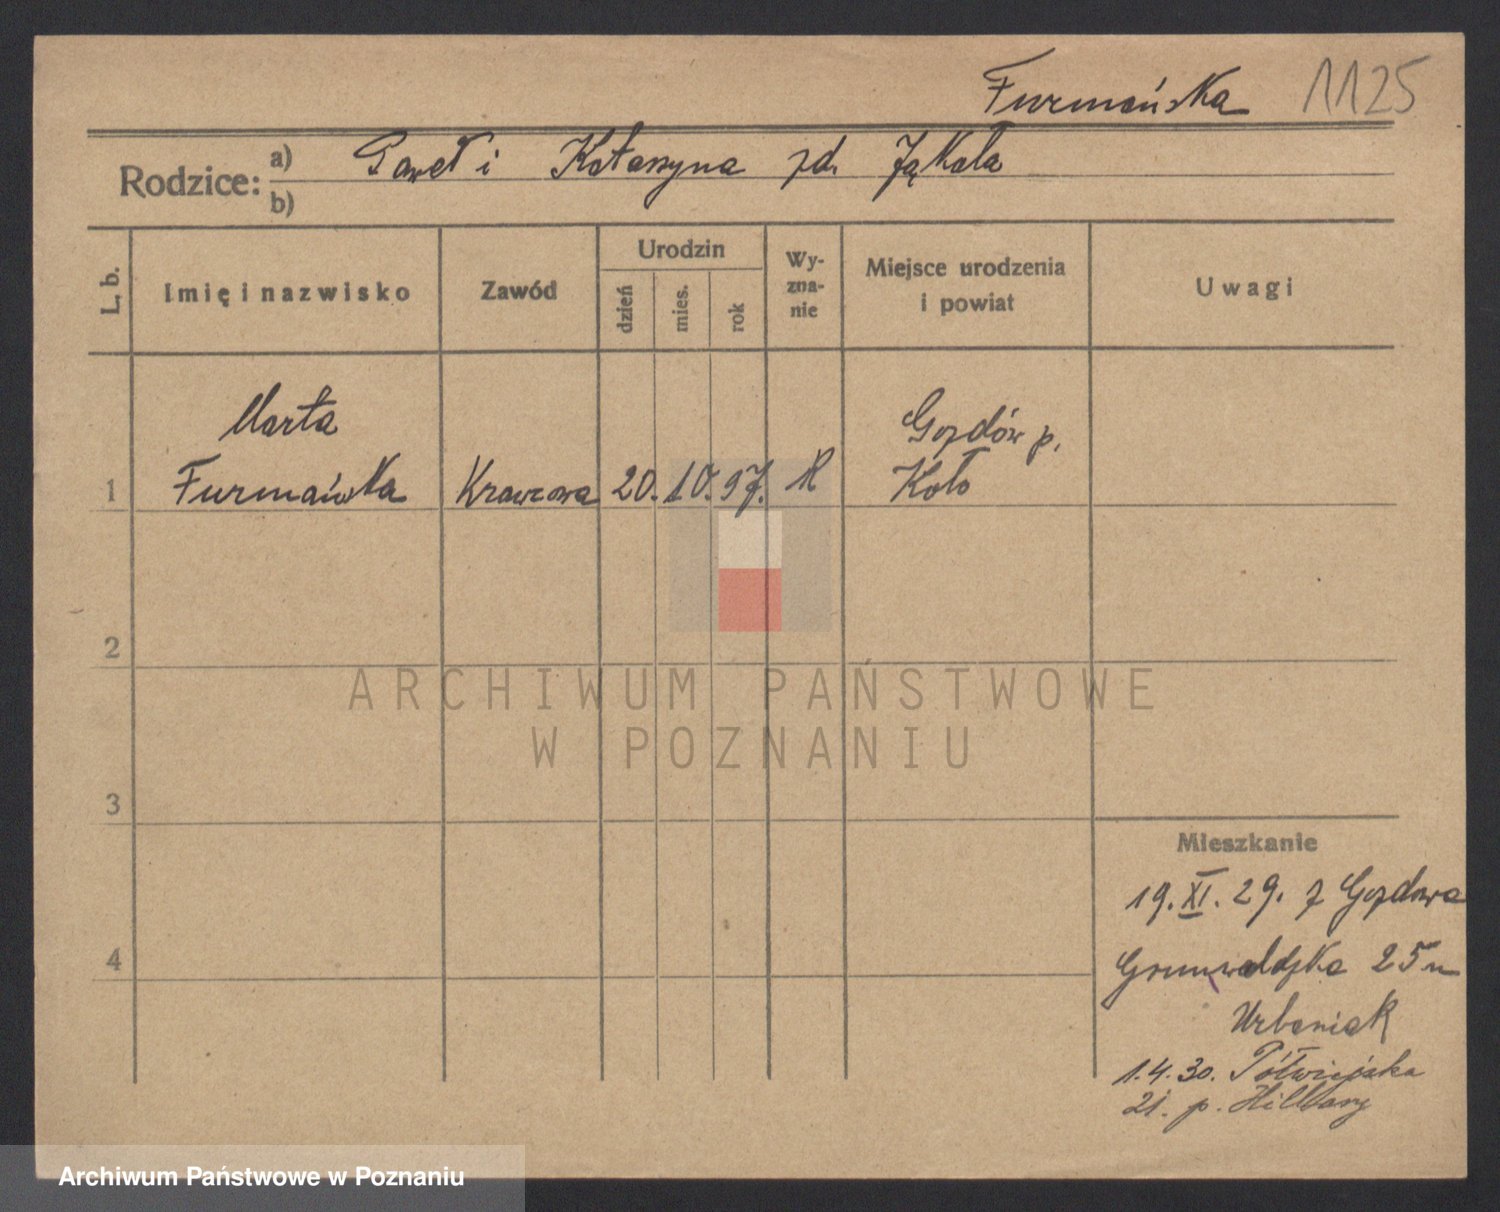 Furmańska 1125
Rodzice: a) Paweł i Katarzyna zd. Jąkała
b)
L. b. Imię i nazwisko Zawód Urodzin dzień mies. rok Wyznanie Miejsce urodzenia i powiat Uwagi
Marta Gozdów p.
1 Furmańska Krawcowa 20. 10. 97. R Koło
2
ARCHIWUM PAŃSTWOWE
W POZNANIU
3
Mieszkanie
19. XI. 29. z Gozdowa
4
Grunwaldzka 25 u
Urbaniak
1.4.30. Półwiejska
21. p.
Archiwum Państwowe w Poznaniu